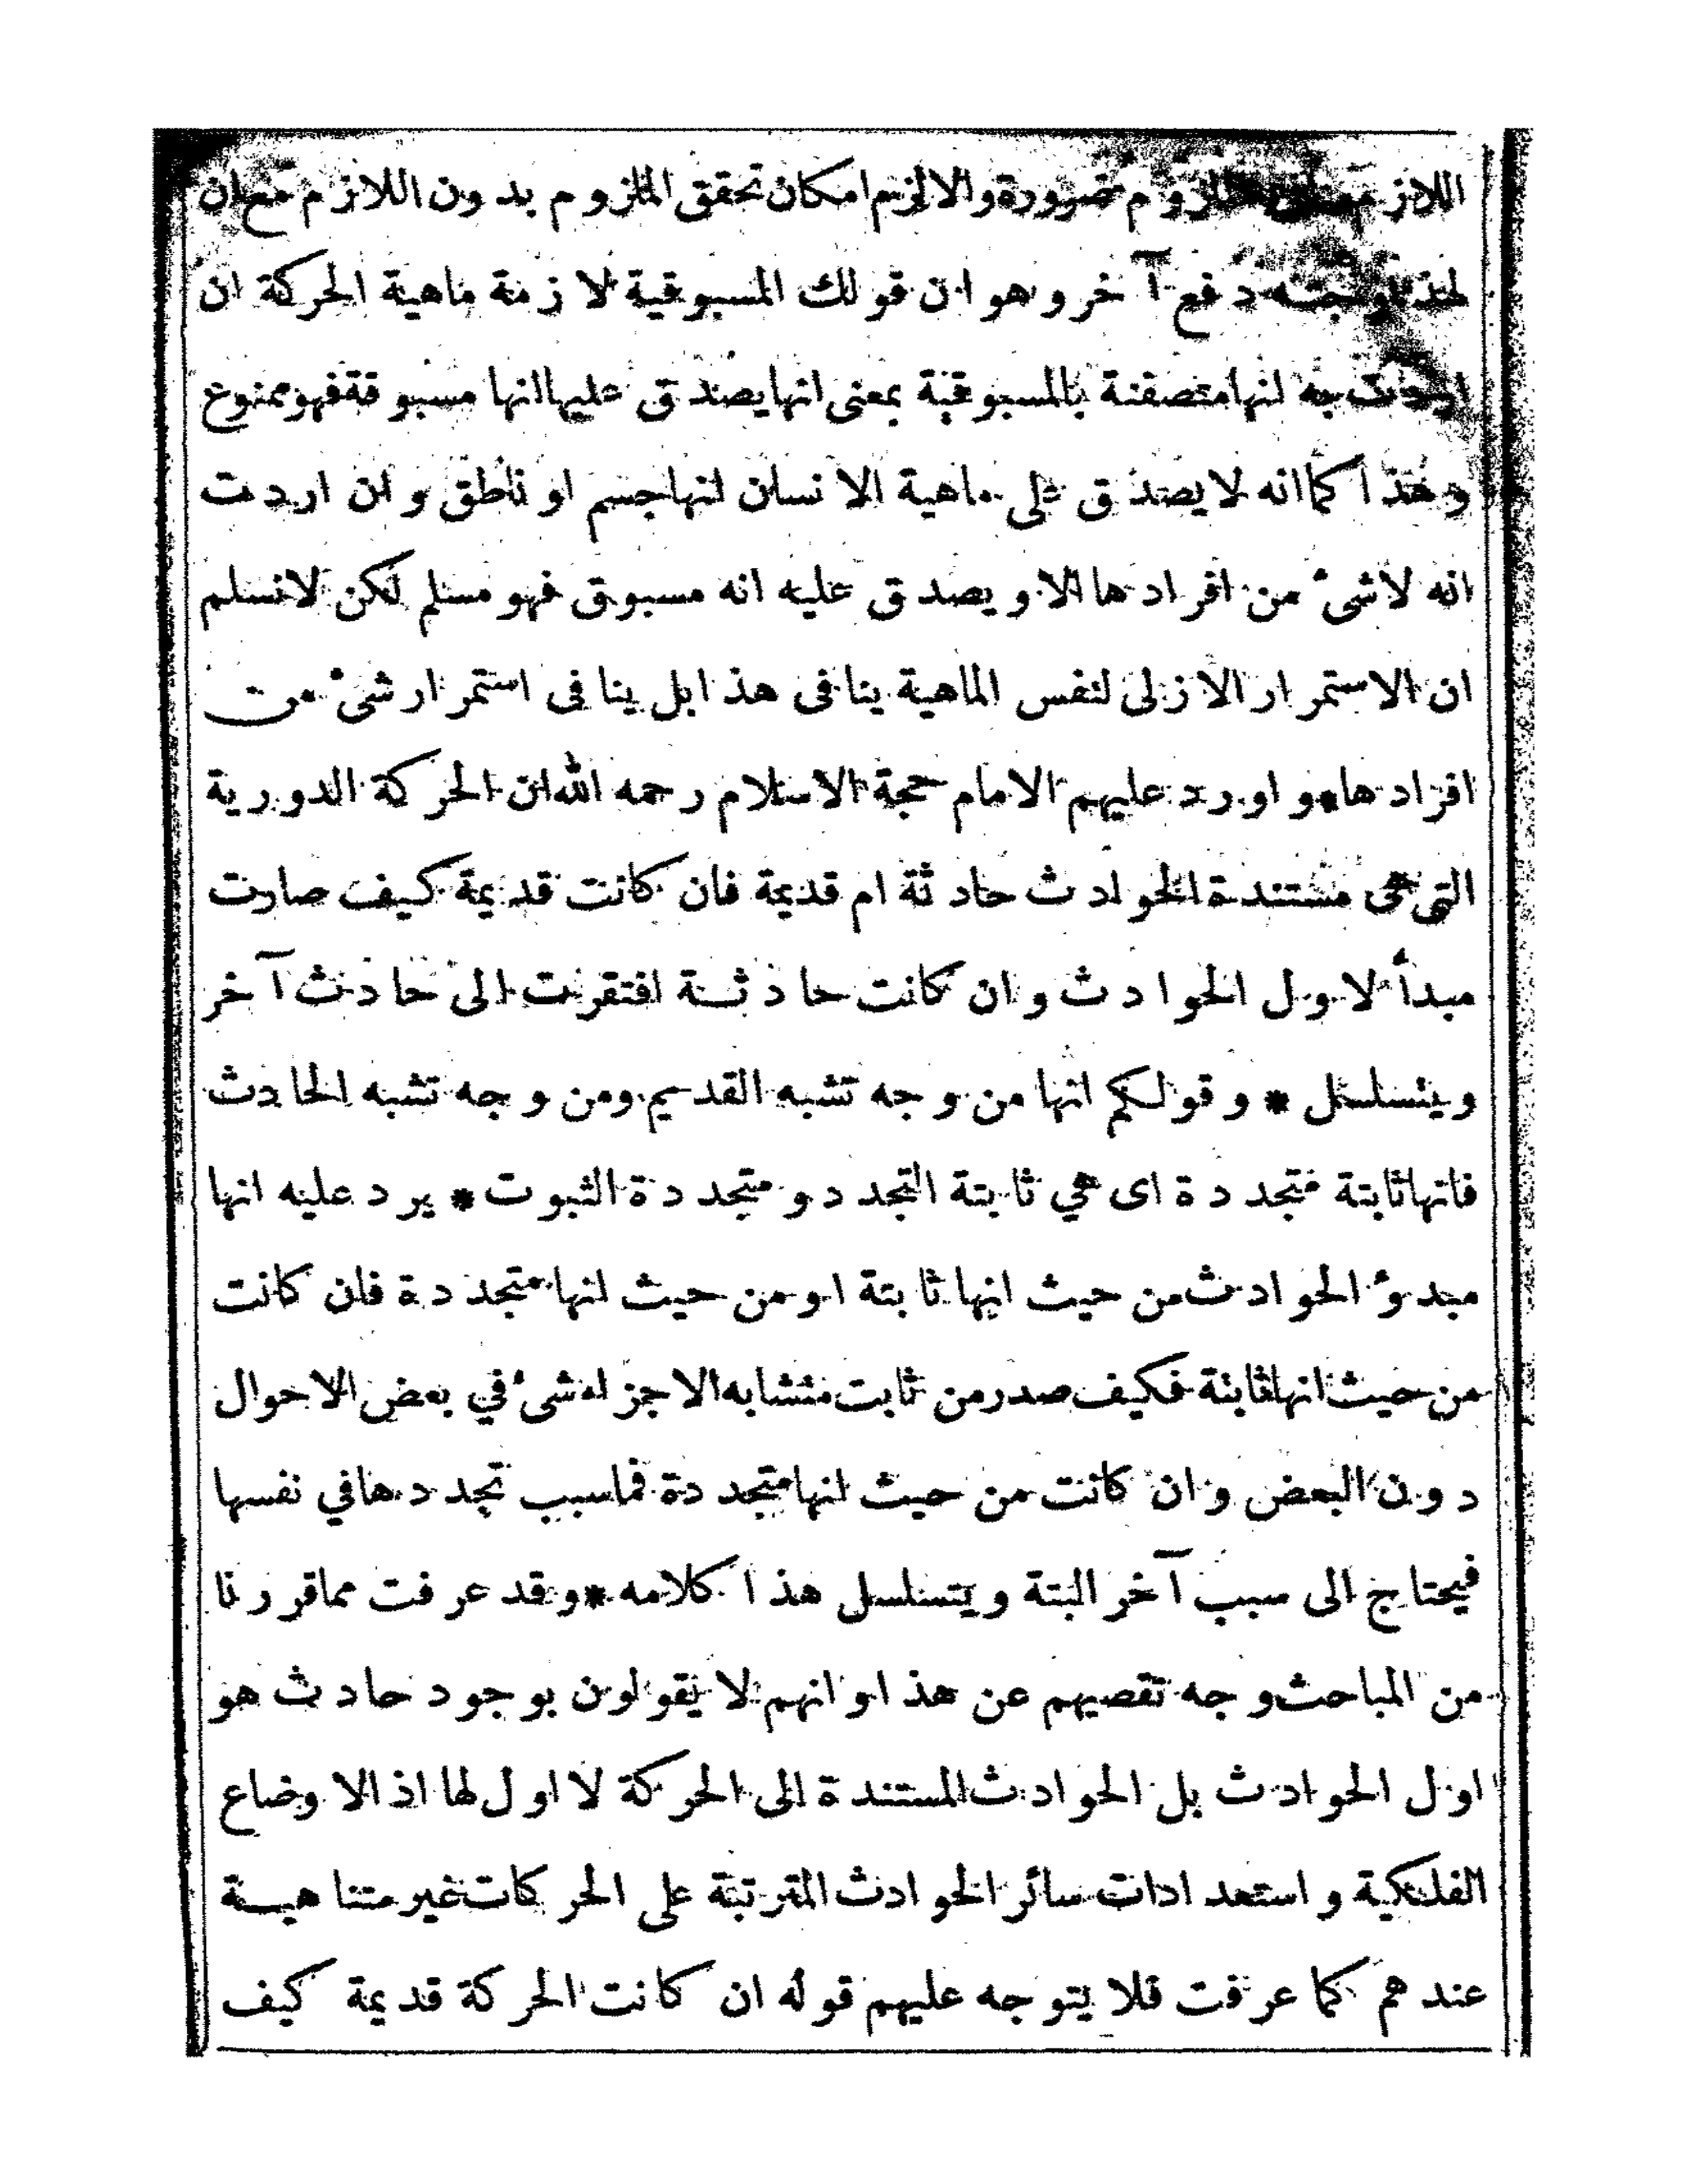 اللازم الملزوم ضرورة والالزم امكان تحقق الملزوم بدون اللازم مع ان
دفع آخر وهو ان قولك المسبوقية لازمة ماهية الحركة ان
اردت به انها متصفة بالمسبوقية بمعنى انها يصدق عليها انها مسبوقة فهو ممنوع
وهذا كما انه لا يصدق على ماهية الانسان انها جسم او ناطق وان اردت
انه لاشئ من افرادها الا ويصدق عليه انه مسبوق فهو مسلم لكن لانسلم
ان الاستمرار الازلى لنفس الماهية ينافى هذا بل ينافى استمرار شئ من
افرادها * واورد عليهم الامام حجة الاسلام رحمه الله ان الحركة الدورية
التى هى مستندة الحوادث حادثة ام قديمة فان كانت قديمة كيف صارت
مبدأ لاول الحوادث وان كانت حادثة افتقرت الى حادث آخر
ويتسلسل * وقولكم انها من وجه تشبه القديم ومن وجه تشبه الحادث
فانها ثابتة متجددة اى هي ثابتة التجدد ومتجددة الثبوت * يرد عليه انها
مبدؤ الحوادث من حيث انها ثابتة او من حيث انها متجددة فان كانت
من حيث انها ثابتة فكيف صدر من ثابت متشابه الاجزاء شئ في بعض الاحوال
دون البعض وان كانت من حيث انها متجددة فما سبب تجددها في نفسها
فيحتاج الى سبب آخر البتة ويتسلسل هذا كلامه * وقد عرفت مما قررنا
من المباحث وجه تفصيهم عن هذا وانهم لا يقولون بوجود حادث هو
اول الحوادث بل الحوادث المستندة الى الحركة لا اول لها اذ الاوضاع
الفلكية واستعدادات سائر الحوادث المترتبة على الحركات غير متناهية
عندهم كما عرفت فلا يتوجه عليهم قوله ان كانت الحركة قديمة كيف